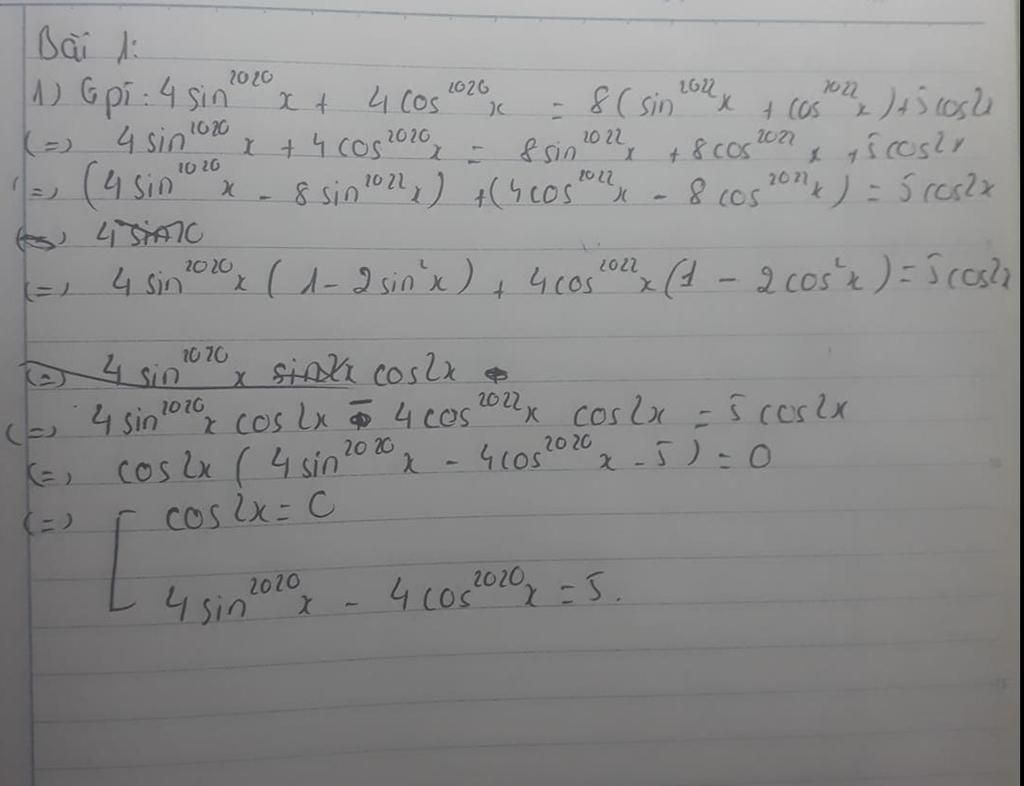 Bài 1:
1) Gpt: 4 sin^2020 x + 4 cos^2020 x = 8 (sin^2022 x + cos^2022 x) + 5 cos2x
(=) 4 sin^2020 x + 4 cos^2020 x = 8 sin^2022 x + 8 cos^2022 x + 5 cos2x
(=) (4 sin^2020 x - 8 sin^2022 x) + (4 cos^2022 x - 8 cos^2022 x) = 5 cos2x
(=) 4 sin
(=) 4 sin^2020 x (1 - 2 sin^2 x) + 4 cos^2022 x (1 - 2 cos^2 x) = 5 cos2x
(=) 4 sin^2020 x sin2x cos2x
(=) 4 sin^2020 x cos2x - 4 cos^2022 x cos2x = 5 cos2x
(=) cos2x (4 sin^2020 x - 4 cos^2020 x - 5) = 0
(=) [ cos2x = 0
4 sin^2020 x - 4 cos^2020 x = 5.